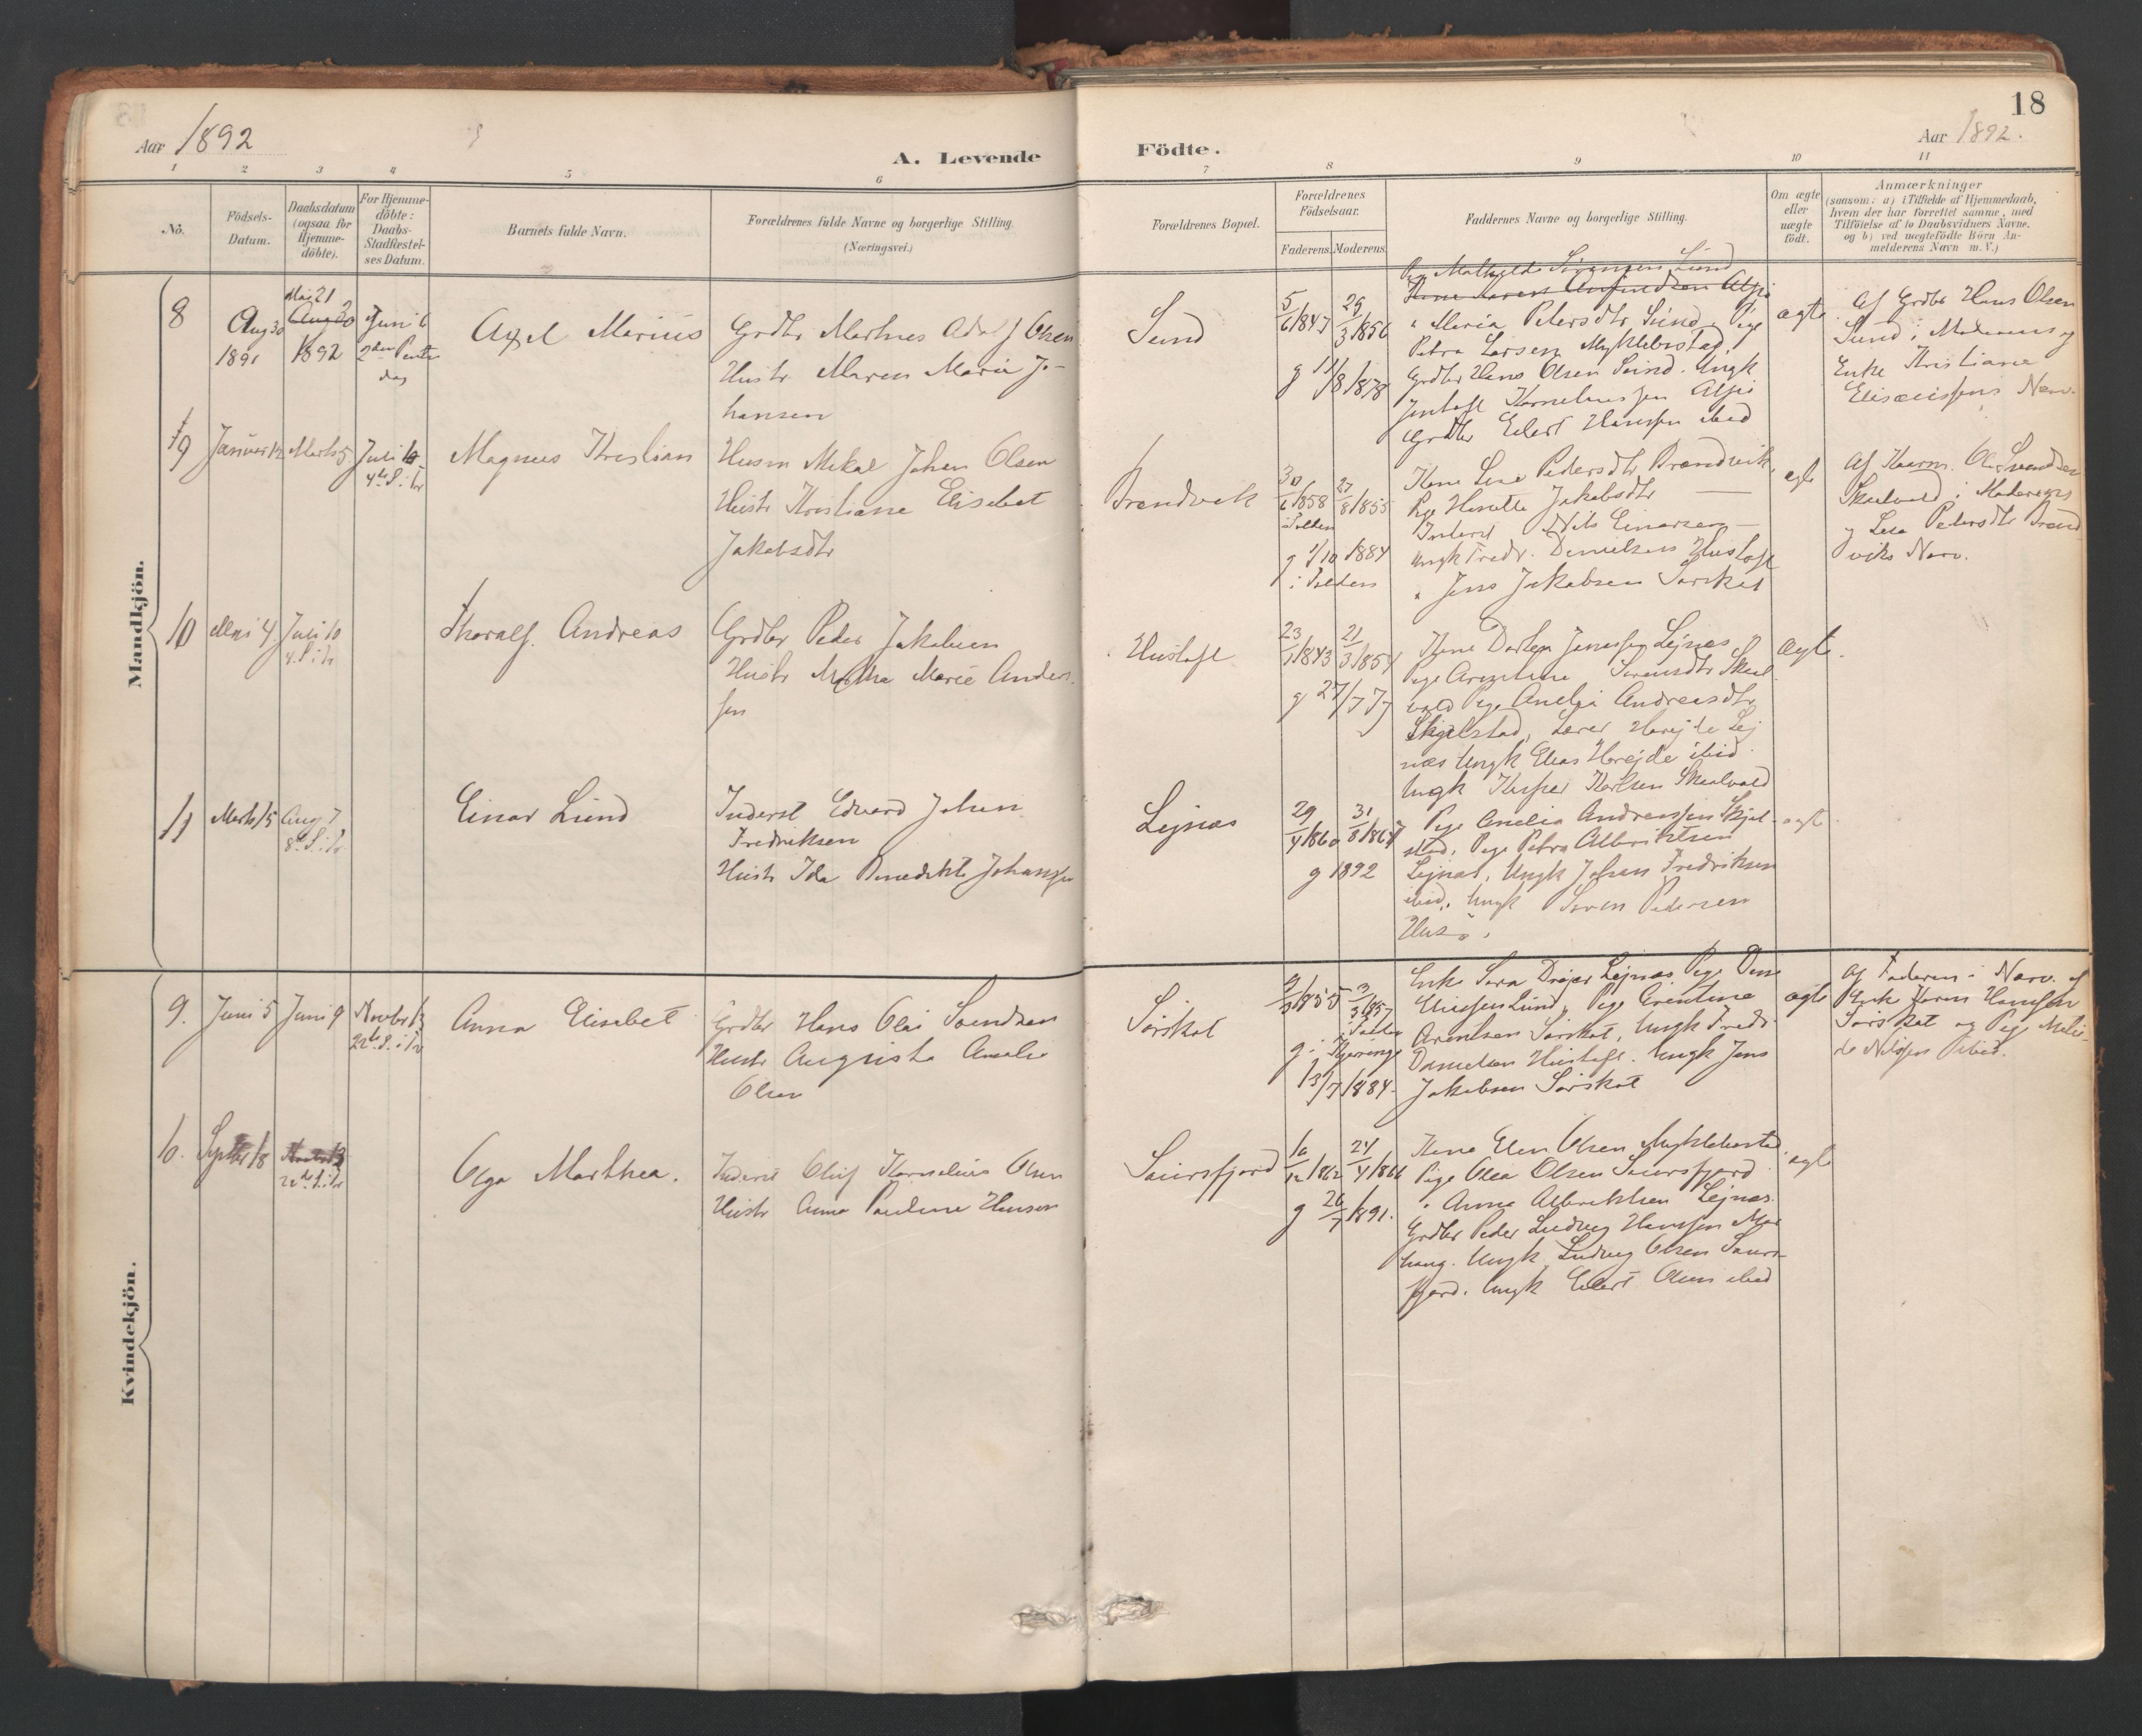 18
Aar 1892
A. Levende
Födte.
Aar 1892.
1 2 3 4 5 6 7 8 9 10 11
No.
Födsels-
Datum.
Daabsdatum
(ogsaa for
Hjemme-
döbte).
For Hjemme-
döbte:
Daabs-
Stadfæstel-
ses Datum.
Barnets fulde Navn.
Forældrenes fulde Navne og borgerlige Stilling.
(Næringsvei.)
Forældrenes Bopæl.
Forældrenes
Födselsaar.
Faderens. Moderens.
Faddernes Navne og borgerlige Stilling.
Om ægte
eller
uægte
födt.
Anmærkninger
(saasom: a) i Tilfælde af Hjemmedaab,
hvem der har forrettet samme, med
Tilföielse af to Daabsvidners Navne,
og b) ved uægtefödte Börn An-
melderens Navn m. V.)
Mandkjön.
8
Aug 30
1891
Mai 21
Aug 30
1892
Juni 6
2den Pintse
dag
Axel Marius
Grdbr Martines Olsen
Hustr Maren Marie Jo-
hansen
Sund
5/6 1847
29/3 1856
g 11/8 1878
Pige Mathilde Sivensen Sund
" Maria Petersdtr Sund. Pige
Petra Larsen Myklebostad,
Grdbr Hans Olsen Sund. Ungk
Kornelius
Grdbr Edert Hansen ibid
ægte
Af Grdbr Hans Olsen
Sund i Moderens og
Enke Kristiane
Nærv.
9
Januar 12
Marts 5
Juli 10
4de S. i Tr
Magnus Kristian
Husm Mikal Johan Olsen
Hustr Kristiane Elisabet
Jakobsdtr
Brendvik
30/6 1858
27/8 1855
g 1/10 1884
i Folden
Kone Lene Pedersdtr Brendvik,
Pige Hanette Jakobsdtr —
Inderst Nils Einarsen —
Ungk Fredr. Danielsen Husloft
" Jens Jakobsen Sörskot
ægte
Af Ole Svendsen
Skulvold i Moderens
og Lene Petersdtr Brend
viks Nærv.
10
Mai 4
Juli 10
4. S. i Tr
Thoralf Andreas
Grdbr Peder Jakobsen
Hustr Martha Marie Anders
sen
Husloft
23/1 1843
21/3 1854
g 27/7 77
Kone Jensen Lejnas
Pige Arentine Sörensdtr Skul
vold Pige Anelia Andreasdtr
Skjelstad, Lærer Horejde Lej
næs Ungk Elias Horejde ibid
Ungk Kasper Karlsen Skulvold
ægte.
11
Marts 15
Aug 7
8de S. i Tr
Einar Lund
Inderst Edvard Johan
Fredriksen
Hustr Ida Benedikte Johansen
Lejnas
29/4 1860
31/8 1864
g 1892
Pige Anelia Andreassen Skjel
stad, Pige Petra Albriktsen
Lejnas, Ungk Johan Fredriksen
ibid, Ungk Sören Pedersen
Hus
ægt
Kvindekjön.
9.
Juni 5
Juni 9
Novbr 13
22de S. i Tr
Anna Elisabet
Grdbr Hans Olai Svendsen
Hustr Augusta Amalie
Olsen
Sörskot
1855
3/3 1857
i Folden
g. i Kjerringö
13/7 1884.
Enke Sara Drejer Lejnas Pige
Lund, Pige Arentine
Arentsen Sörskot, Ungk Fredr.
Danielsen Husloft. Ungk Jens
Jakobsen Sörskot
ægte
Af Faderen i Nærv. af
Enke Karen Hansen
Sörskot og Pige
Nilsen ibid.
10.
Septbr 18
Novbr 13
22de S. i Tr
Olga Marthea.
Inderst Oluf Kornelius Olsen
Hustr Anna Pauline Hansen
Saursfjord
10/12 1862
24/4 1866
g 26/7 1891.
Kone Elen Olsen Myklebostad.
Pige Olea Olsen Saursfjord
" Anna Albriktsen Lejnas.
Grdbr Peder Ludvig Hansen Mar
haug. Ungk Ludvig Olsen Saurs
fjord. Ungk Edert Olsen ibid
ægte